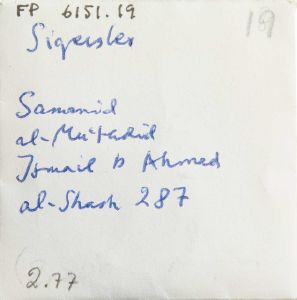 FP 6151.19
19
Sigersler
Samanid
al-Mu'tadid
Ismail b Ahmed
al-Shash 287
2.77